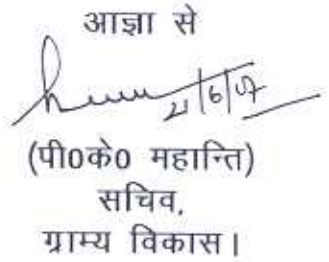 आज्ञा से
21/6/07
(पी0के0 महान्ति)
सचिव,
ग्राम्य विकास।